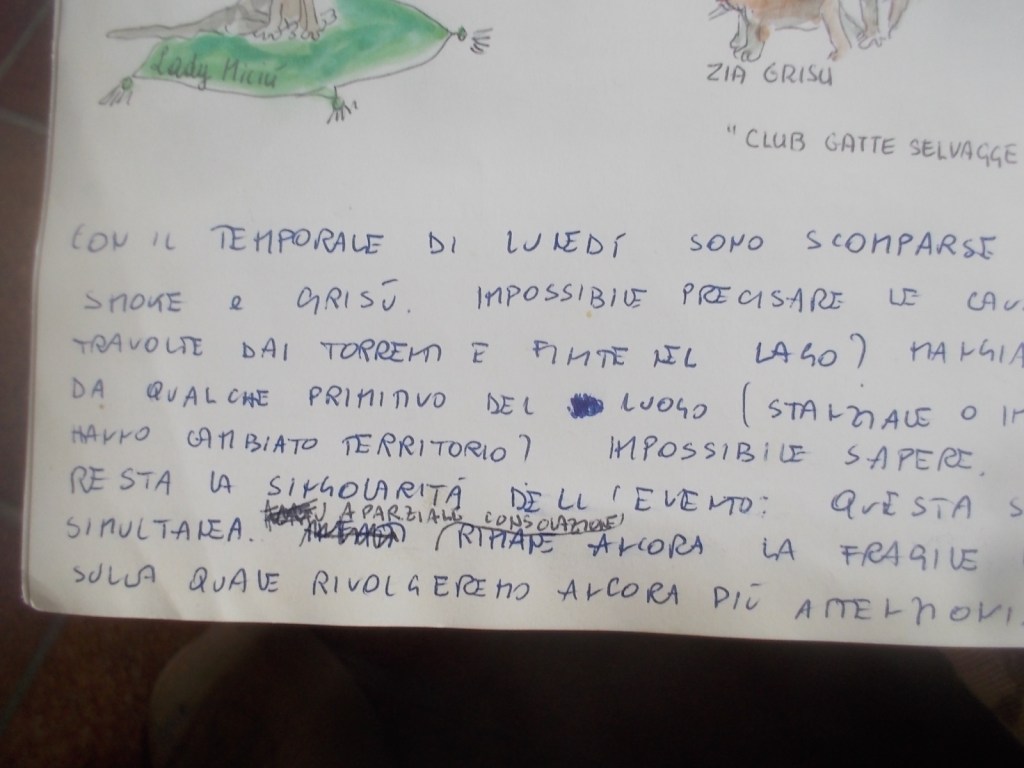 Lady Miciú
ZIA GRISU
"CLUB GATTE SELVAGGE
CON IL TEMPORALE DI LUNEDÍ SONO SCOMPARSE
SMOKE e GRISÚ. IMPOSSIBILE PRECISARE LE CAU
TRAVOLTE DAI TORRENTI E FINITE NEL LAGO? MANGIA
DA QUALCHE PRIMITIVO DEL LUOGO (STANZIALE O IM
HANNO CAMBIATO TERRITORIO? IMPOSSIBILE SAPERE.
RESTA LA SINGOLARITÁ DELL'EVENTO: QUESTA S
A PARZIALE CONSOLAZIONE,
SIMULTANEA. RIMANE ANCORA LA FRAGILE
SULLA QUALE RIVOLGEREMO ANCORA PIÚ ATTENZIONI.